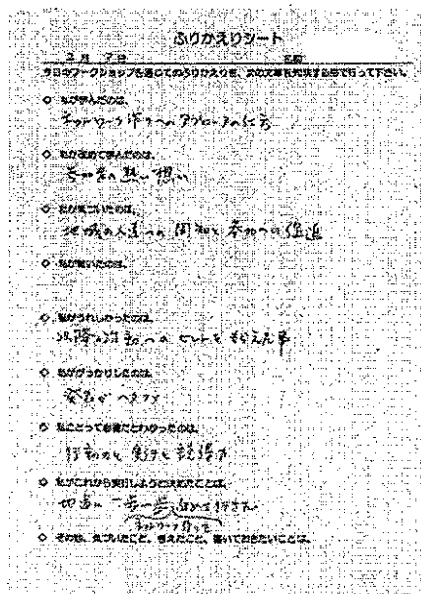 ふりかえりシート
2月 7日 名前
今日のワークショップを通じてのふりかえりを、次の文章を完成する形で行って下さい。
◇ 私が学んだのは、
ネットワーク作りへのアプローチの仕方
◇ 私が改めて学んだのは、
参加者の熱い想い
◇ 私が気づいたのは、
地域の人達への周知と参加への促進
◇ 私が驚いたのは、
◇ 私がうれしかったのは、
以降の活動へのヒントをもらえた事
◇ 私ががっかりしたのは、
発言がヘタクソ
◇ 私にとって必要だとわかったのは、
行動力と説得力
◇ 私がこれから実行しようと決めたことは、
地道に一歩一歩進めて行きたい
ネットワーク作りを
◇ その他、気づいたこと、考えたこと、書いておきたいことは、